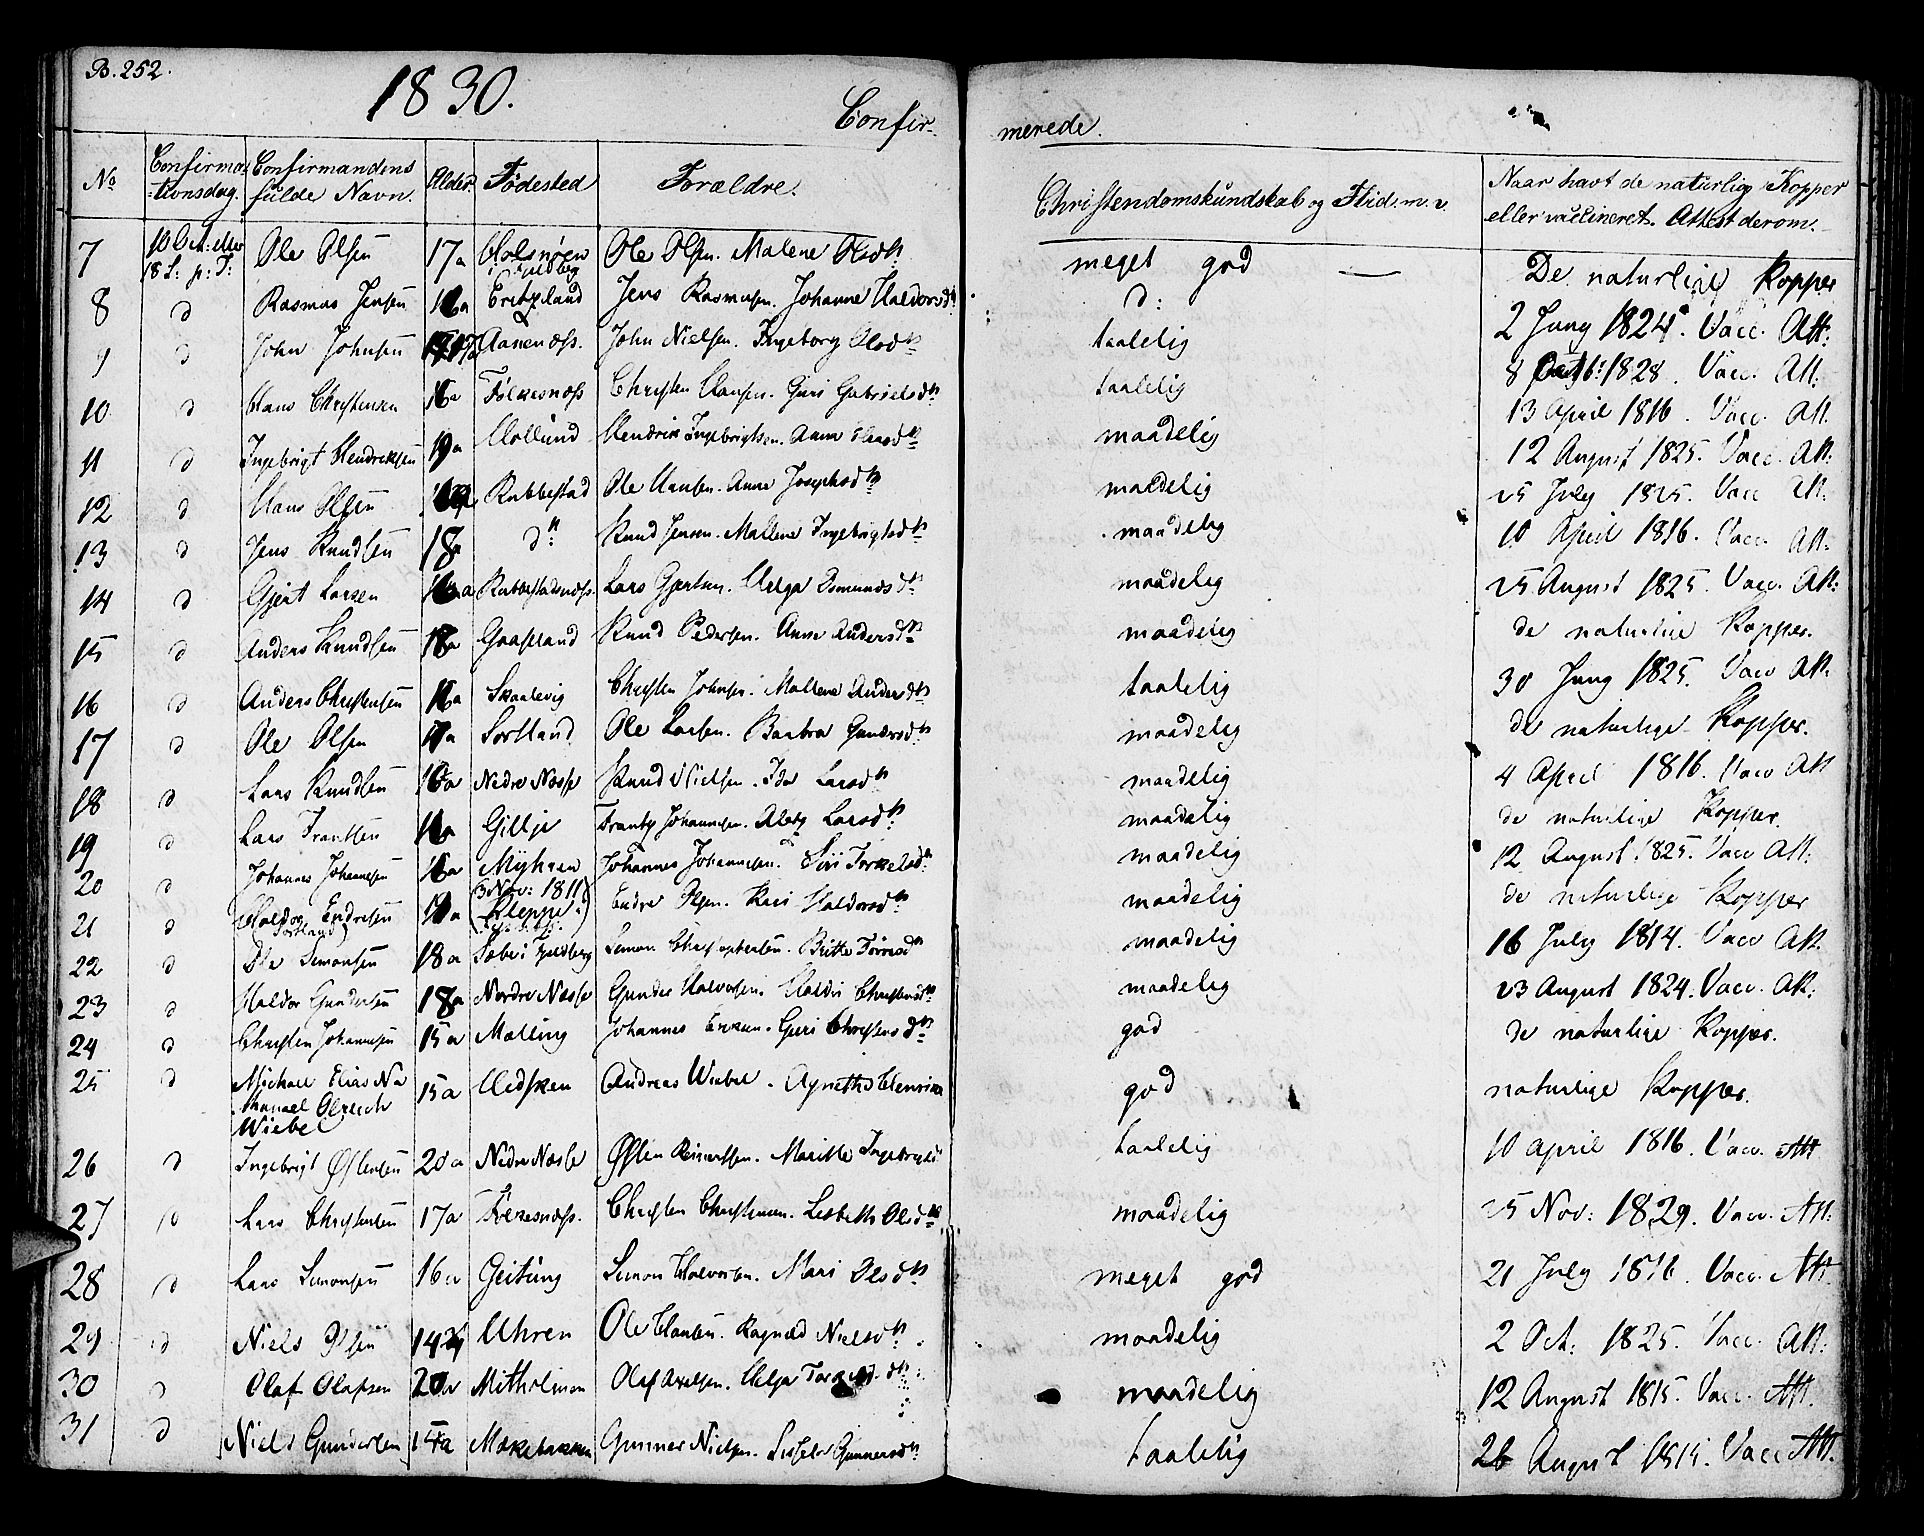 B. 252.
1830.
Confir-
merede.
No Confirma- Confirmandens Alder. Födested Forældre. Christendomskundskab og Flid m. v. Naar havt de naturlige Kopper
-tionsdag. fulde Navn. eller vaccineret. Attest derom.
7 10 Oct. eller Ole Olsen 17 a Holsnöen Ole Olsen. Malene Olsdr meget god — De naturlige Kopper
18 S: p: T:
8 d Rasmus Jensen Eritzland Jens Rasmusen. Johanne Haldorsdr d: 2 Juny 1824. Vacc. Att:
9 d John Johnsen John Nielsen. Ingeborg Olsdr taalelig 8 1828. Vacc. Att:
10 d Hans Christensen 16 a Fölkesnæss Christen Hansen. Guri Gabrielsdr taalelig 13 April 1816. Vacc. Att.
11 d Ingebrigt Hendriksen 19 a Hollund Hendrik Ingebrigtsen. Anna Olsdr maadelig 12 August 1825. Vacc. Att:
12 d Hans Olsen Rabbestad Ole Hansen. Anne Josephsdr maadelig 25 July 1825. Vacc Att:
13 d Jens Knudsen 18 d: Knud Jensen. Mallene Ingebrigtsdr maadelig 10 April 1816. Vacc Att:
14 d Gjert Larsen Rabbestadnæss. Lars Gjertsen. Helga Osmundsdr maadelig 25 August 1825. Vacc. Att:
15 d Anders Knudsen 18 a Gaasland Knud Pedersen. Anna Andersdr maadelig de naturlige Kopper.
16 d Anders Christensen 16 a Skaalevig Christen Johnsen. Mallene Andersdr taalelig 30 Juny 1825. Vacc Att.
17 d Ole Olsen 17 a Sortland Ole Larsen. Barbra Gundersdr maadelig de naturlige Kopper.
18 d Lars Knudsen 16 a Nedre Næsse Knud Nielsen. Ida Larsdr maadelig 4 April 1816. Vacc Att
19 d Lars Frantsen 16 a Gillje Frantz Johannesen. Larsdr maadelig de naturlige Kopper.
20 d Johannes Johannesen 16 a Myhren Johannes Johannesen. Siri Torkelsdr maadelig 12 August 1825. Vacc Att:
21 d Haldor Endresen (3 Nov: 1811) Endre Olsen. Kari Haldorsdr maadelig de naturlige Kopper
22 d Ole Simonsen 18 a Sæbö i Simon Christophersen. Britte maadelig 16 July 1814. Vacc Att.
23 d Haldor Gundersen 18 a Nordre Næsse Gunder Halvorsen. Christensdr maadelig 23 August 1824. Vacc. Att:
24 d Christen Johannesen 15 a Mælling Johannes Guri Christensdr god de naturlige Kopper.
25 d Michael Elias Na 15 a Andreas Wiebel. Agnetha Henrica god naturlige Kopper.
thanael Olrich
Wiebel
26 d Ingebrigt Östensen 20 a Nedre Næsse Östen Marithe Ingebrigtsdr taalelig 10 April 1816. Vacc. Att
27 d Lars Christensen 17 a Fölkesnæss. Christen Christensen. Lisbeth Olsdr maadelig 25 Nov: 1829. Vacc. Att:
28 d Lars Simonsen 16 a Geitung Simon Halvorsen. Mari Olsdr meget god 21 July 1816. Vacc. Att
29 d Niels Olsen Uhren Ole Hansen. Ragnild Nielsdr maadelig 2 Oct: 1825. Vacc. Att:
30 d Olaf Olafsen 20 a Mitholmen Olaf Helga maadelig 12 August 1815. Vacc. Att.
31 d Niels Gundersen 14 a Mökebakken Gunner Nielsen. Gunnersdr taalelig 26 August 1815. Vacc Att.